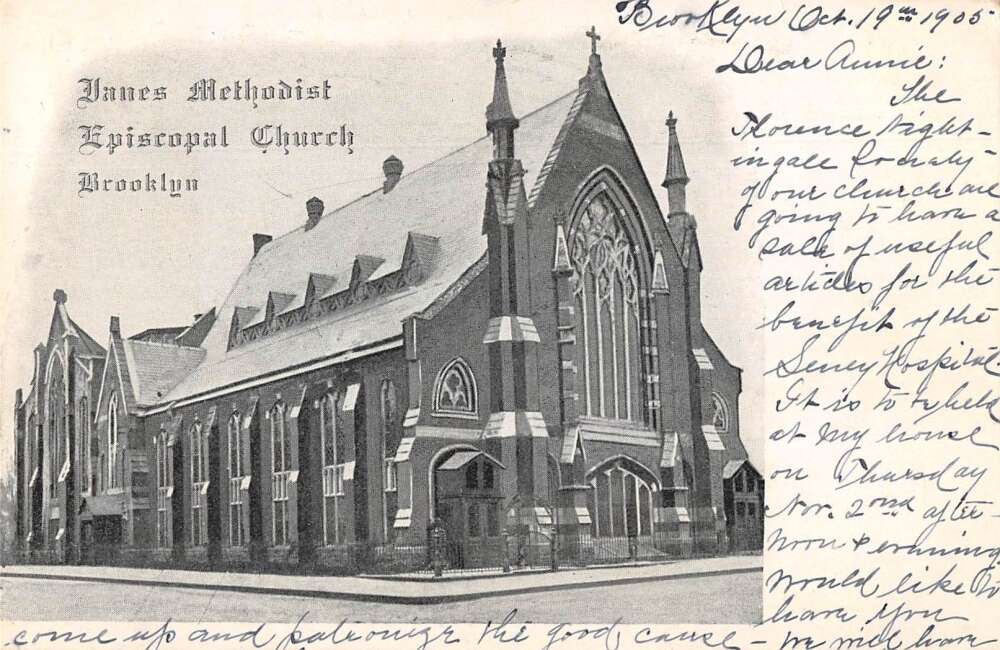 Janes Methodist
Episcopal Church
Brooklyn
Brooklyn Oct. 19th 1905
Dear Annie:
The
Florence Night-
ingale Society
of our church are
going to have a
sale of useful
articles for the
benefit of the
Seney Hospital
It is to be held
at my house
on Thursday
Nov. 2nd after-
noon & evening
would like to
have you
come up and patronize the good cause -
we will have